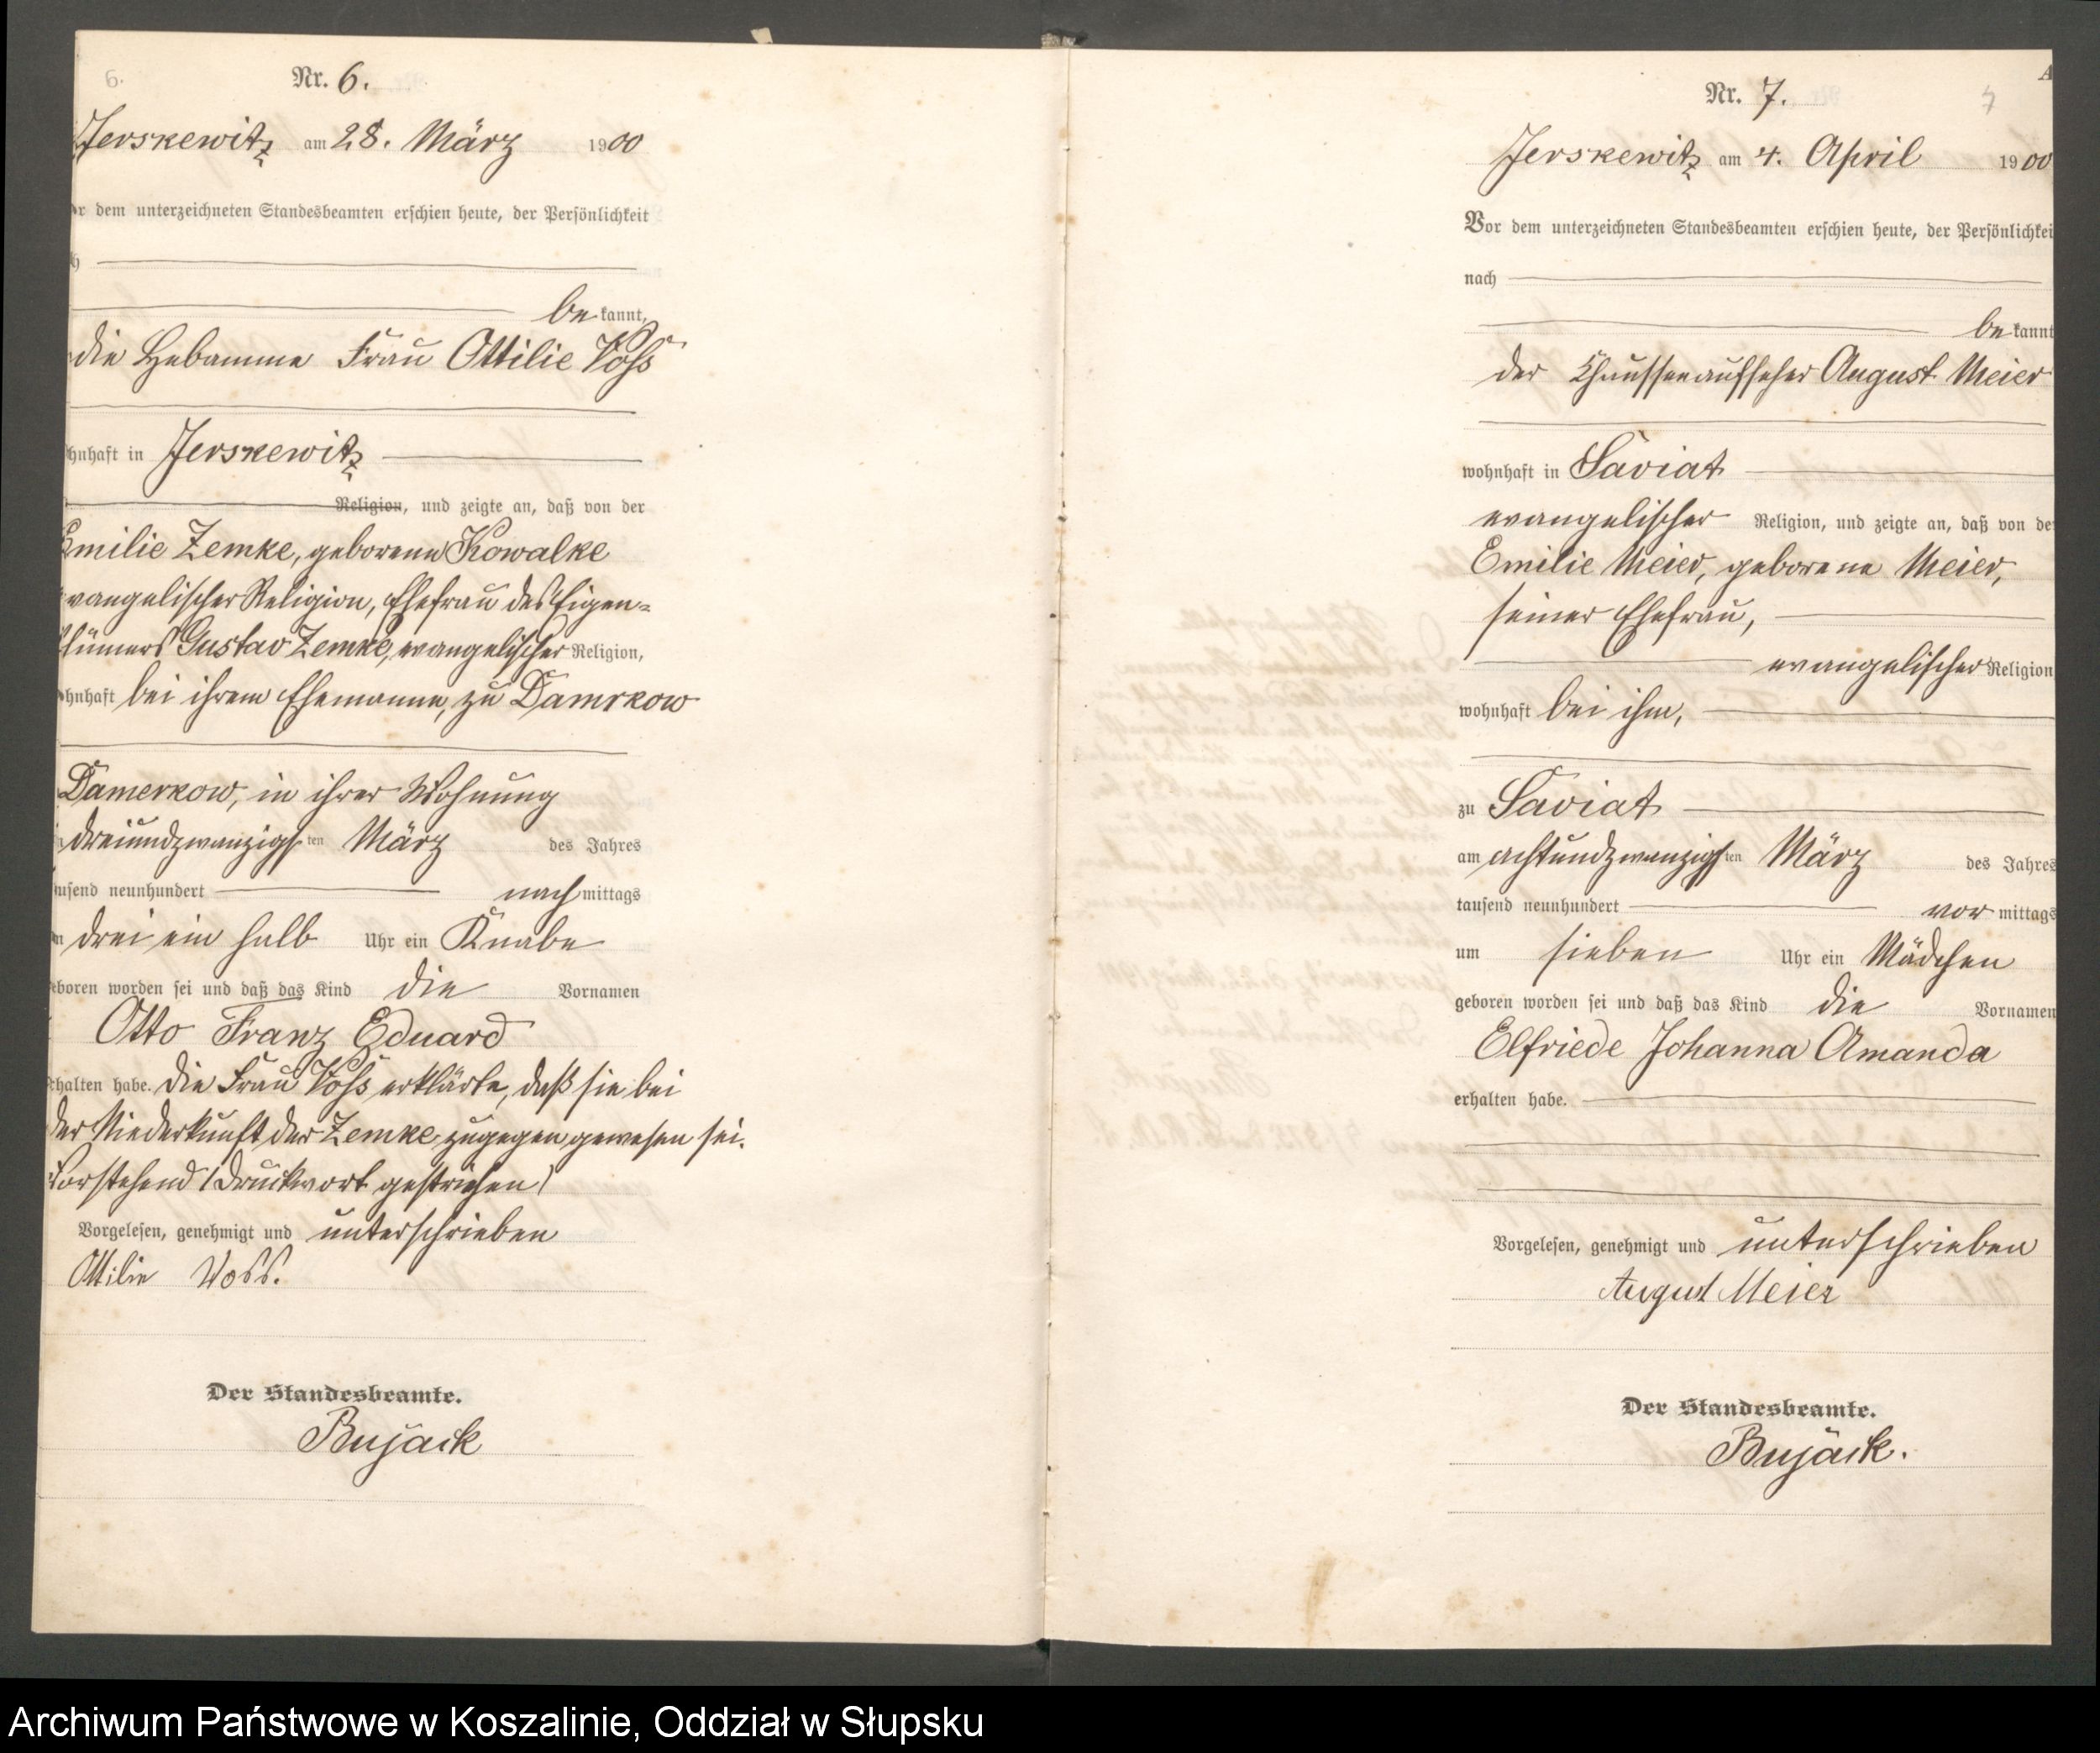 6.
Nr. 6.
Jerskewitz am 28. März 1900
r dem unterzeichneten Standesbeamten erschien heute, der Persönlichkeit
h
be kannt,
die Hebamme Frau Ottilie Voß
hnhaft in Jerskewitz
Religion, und zeigte an, daß von der
Emilie Zemke, geborene Kowalke
vangelischer Religion, Ehefrau des Eigen=
thümers Gustav Zemke, evangelischer Religion,
ohnhaft bei ihrem Ehemanne, zu Damrkow
Damerkow, in ihrer Wohnung
dreiundzwanzigsten März des Jahres
usend neunhundert nach mittags
m drei ein halb Uhr ein Knabe
eboren worden sei und daß das Kind die Vornamen
Otto Franz Eduard
rhalten habe. Die Frau Voß erklärte, daß sie bei
der Niederkunft der Zemke zugegen gewesen sei.
Vorstehend 1 Druckwort gestrichen
Vorgelesen, genehmigt und unterschrieben
Ottilie Voss.
Der Standesbeamte.
Bujack
A
7
Nr. 7.
Jerskewitz am 4. April 1900
Vor dem unterzeichneten Standesbeamten erschien heute, der Persönlichkei
nach
be kannt
der Chausseeaufseher August Meier
wohnhaft in Saviat
evangelischer Religion, und zeigte an, daß von de
Emilie Meier, geborene Meier,
seiner Ehefrau,
evangelischer Religion
wohnhaft bei ihm,
zu Saviat
am achtundzwanzigsten März des Jahres
tausend neunhundert vor mittags
um sieben Uhr ein Mädchen
geboren worden sei und daß das Kind die Vornamen
Elfriede Johanna Amanda
erhalten habe.
Vorgelesen, genehmigt und unterschrieben
August Meier
Der Standesbeamte.
Bujack.
Archiwum Państwowe w Koszalinie, Oddział w Słupsku